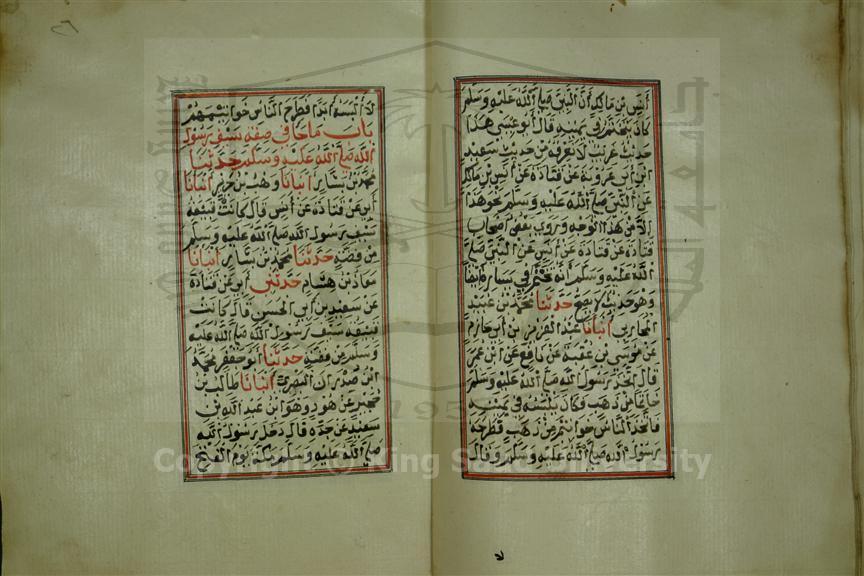 أنس بن مالك أن النبي صلى الله عليه وسلم
كان يتختم في يمينه قال أبو عيسى هذا
حديث غريب لا نعرفه من حديث سعيد
ابن أبي عروبة عن قتادة عن أنس بن مالك
عن النبي صلى الله عليه وسلم نحو هذا
إلا من هذا الوجه وروى بعض أصحاب
قتادة عن قتادة عن أنس عن النبي صلى
الله عليه وسلم أنه تختم في يساره أيضا
وهو حديث لا يصح حدثنا محمد بن عبيد
المحاربي أنبأنا عبد العزيز بن أبي حازم
عن موسى بن عقبة عن نافع عن ابن عمر
قال اتخذ رسول الله صلى الله عليه وسلم
خاتما من ذهب فكان يلبسه في يمينه
فاتخذ الناس خواتيم من ذهب فطرحه
رسول الله صلى الله عليه وسلم وقال
لا
٢٦
لا ألبسه أبدا فطرح الناس خواتيمهم
باب ما جاء في صفة سيف رسول
الله صلى الله عليه وسلم حدثنا
محمد بن بشار أنبأنا وهب بن جرير أنبأنا
أبي عن قتادة عن أنس قال كانت قبيعة
سيف رسول الله صلى الله عليه وسلم
من فضة حدثنا محمد بن بشار أنبأنا
معاذ بن هشام حدثني أبي عن قتادة
عن سعيد بن أبي الحسن قال كانت
قبيعة سيف رسول الله صلى الله عليه
وسلم من فضة حدثنا أبو جعفر محمد
ابن صدران البصري أنبأنا طالب بن
حجير عن هود وهو ابن عبد الله بن
سعيد عن جده قال دخل رسول الله
صلى الله عليه وسلم مكة يوم الفتح
Copyright © King Saud University
195